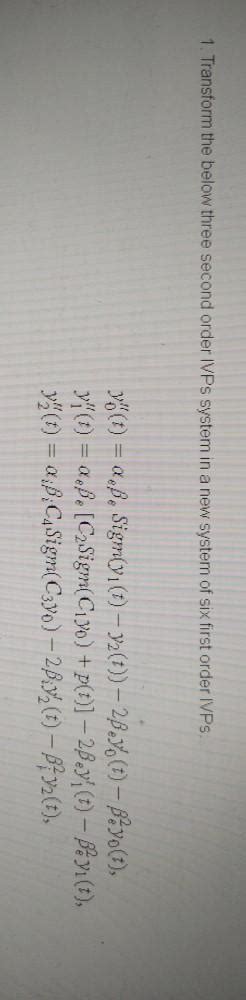 1. Transform the below three second order IVPs system in a new system of six first order IVPs.
y₀''(t) = αₑβₑ Sigm(y₁(t) − y₂(t)) − 2βₑy₀'(t) − βₑ²y₀(t),
y₁''(t) = αₑβₑ [C₂Sigm(C₁y₀) + p(t)] − 2βₑy₁'(t) − βₑ²y₁(t),
y₂''(t) = αᵢβᵢC₄Sigm(C₃y₀) − 2βᵢy₂'(t) − βᵢ²y₂(t),